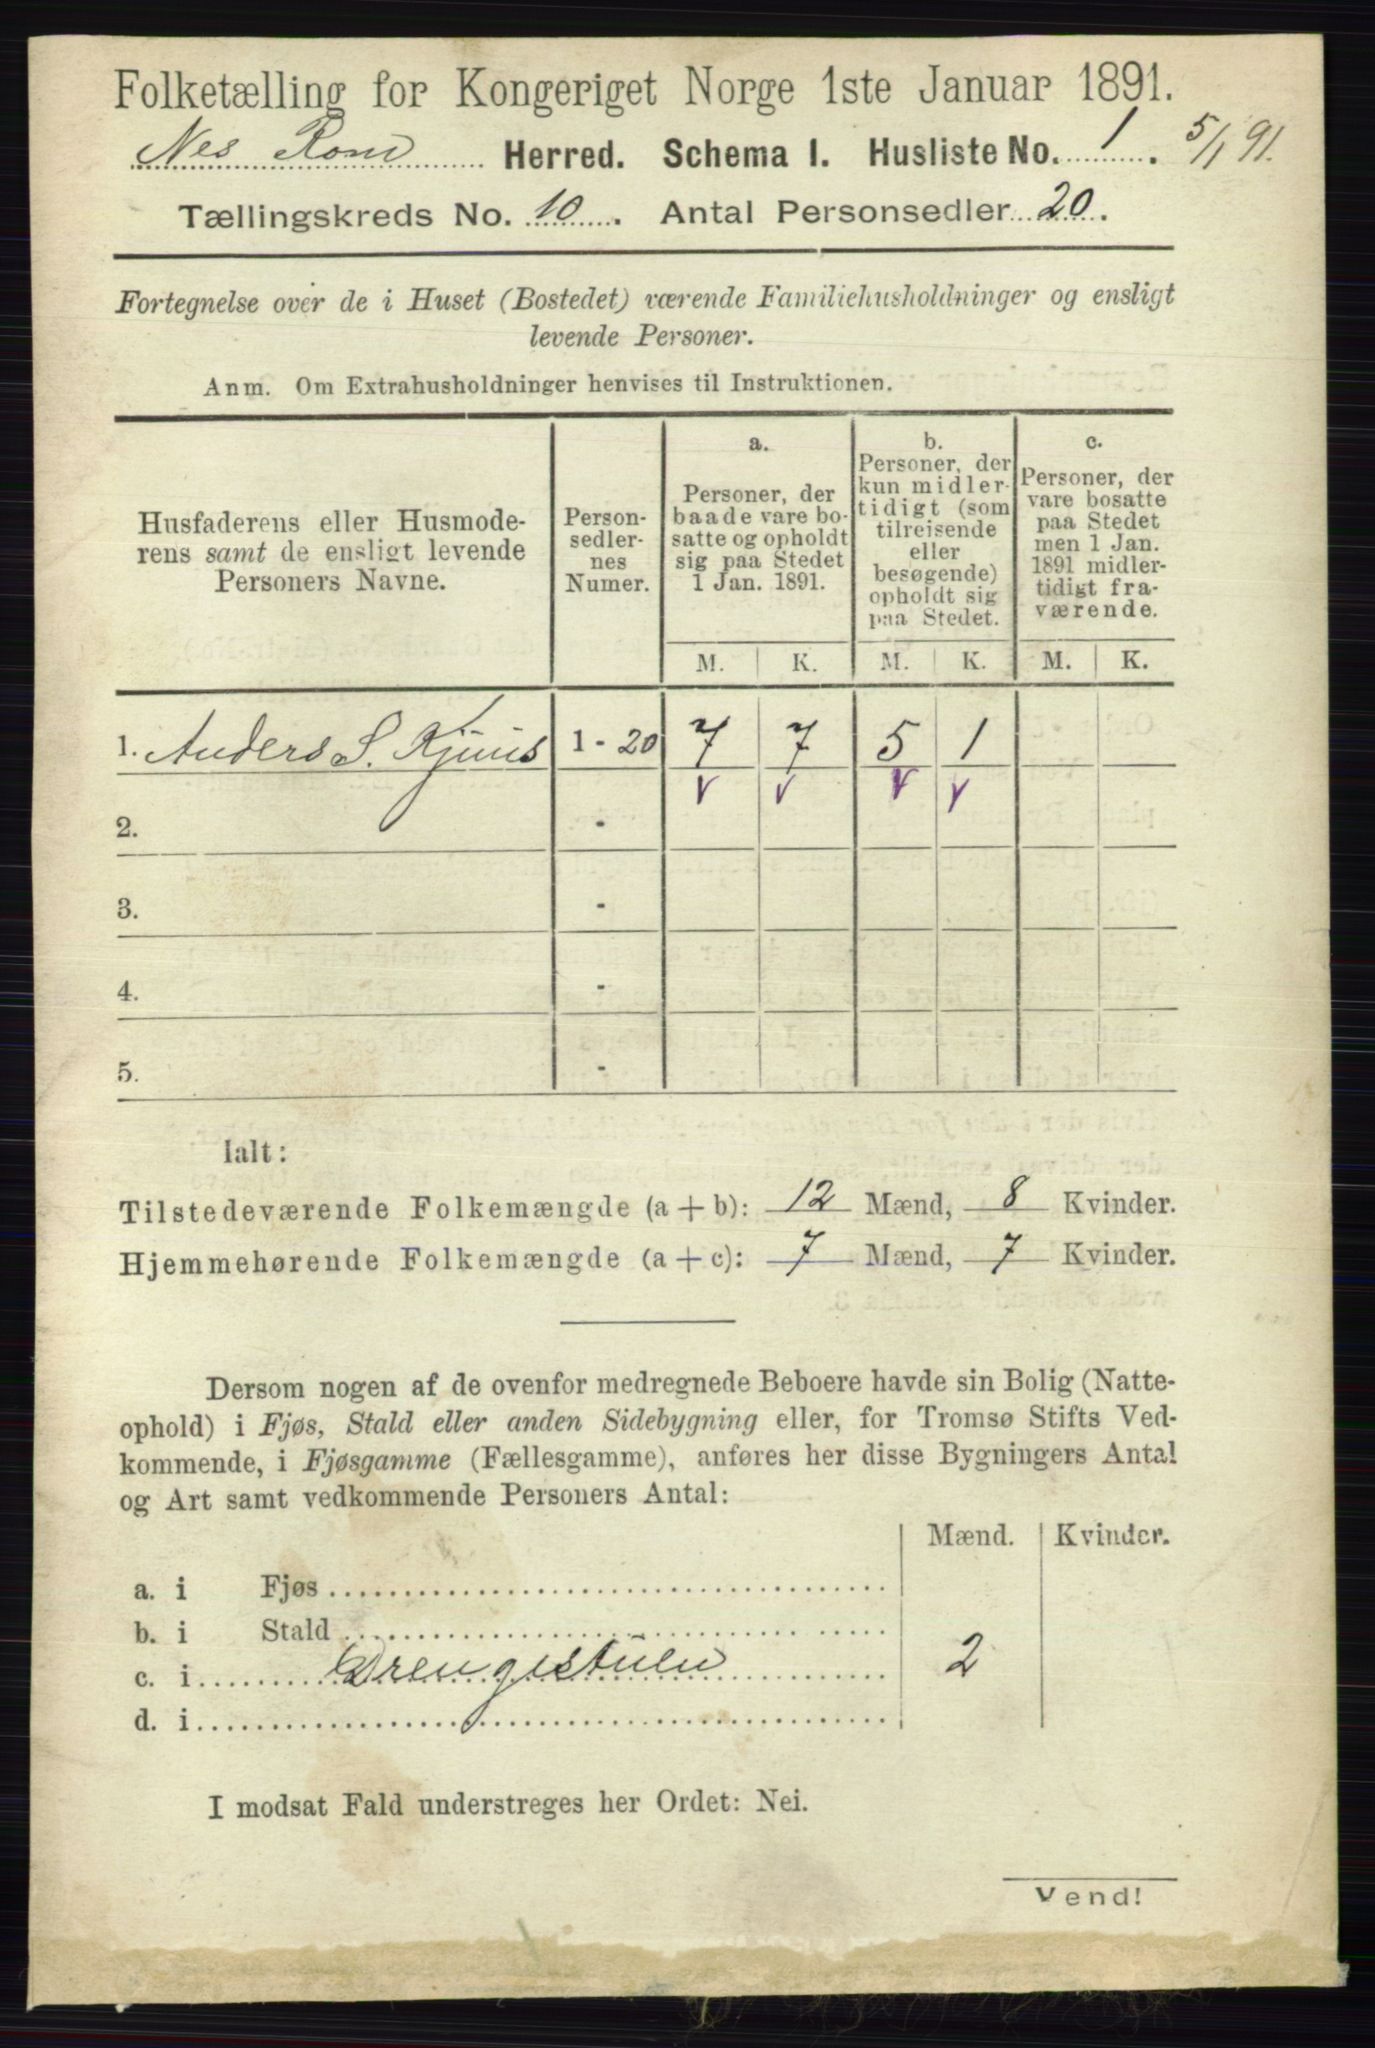 Folketælling for Kongeriget Norge 1ste Januar 1891.
Nes Rom Herred. Schema I. Husliste No. 1. 5/1 91.
Tællingskreds No. 10. Antal Personsedler 20.
Fortegnelse over de i Huset (Bostedet) værende Familiehusholdninger og ensligt
levende Personer.
Anm. Om Extrahusholdninger henvises til Instruktionen.
Husfaderens eller Husmode-
rens samt de ensligt levende
Personers Navne.
Person-
sedler-
nes
Numer.
a.
Personer, der
baade vare bo-
satte og opholdt
sig paa Stedet
1 Jan. 1891.
b.
Personer, der
kun midler-
tidigt (som
tilreisende
eller
besøgende)
opholdt sig
paa Stedet.
c.
Personer, der
vare bosatte
paa Stedet
men 1 Jan.
1891 midler-
tidigt fra-
værende.
M. K. M. K. M. K.
1. Anders S. Kjuus 1 - 20 7 7 5 1
2. -
3. -
4. -
5. -
Ialt:
Tilstedeværende Folkemængde (a + b): 12 Mænd, 8 Kvinder.
Hjemmehørende Folkemængde (a + c): 7 Mænd, 7 Kvinder.
Dersom nogen af de ovenfor medregnede Beboere havde sin Bolig (Natte-
ophold) i Fjøs, Stald eller anden Sidebygning eller, for Tromsø Stifts Ved-
kommende, i Fjøsgamme (Fællesgamme), anføres her disse Bygningers Antal
og Art samt vedkommende Personers Antal:
Mænd. Kvinder.
a. i Fjøs
b. i Stald
c. i Drengestuen 2
d. i
I modsat Fald understreges her Ordet: Nei.
Vend!